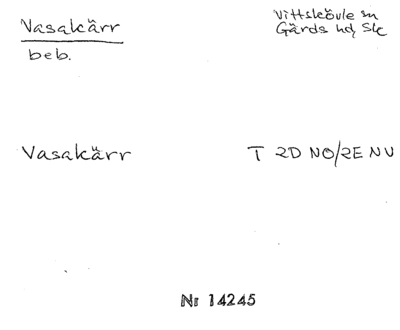 Vasakärr
Vittskövle sn
Gärds hd, Sk
beb.
Vasakärr
T 2D NO/2E NV
Nr 14245